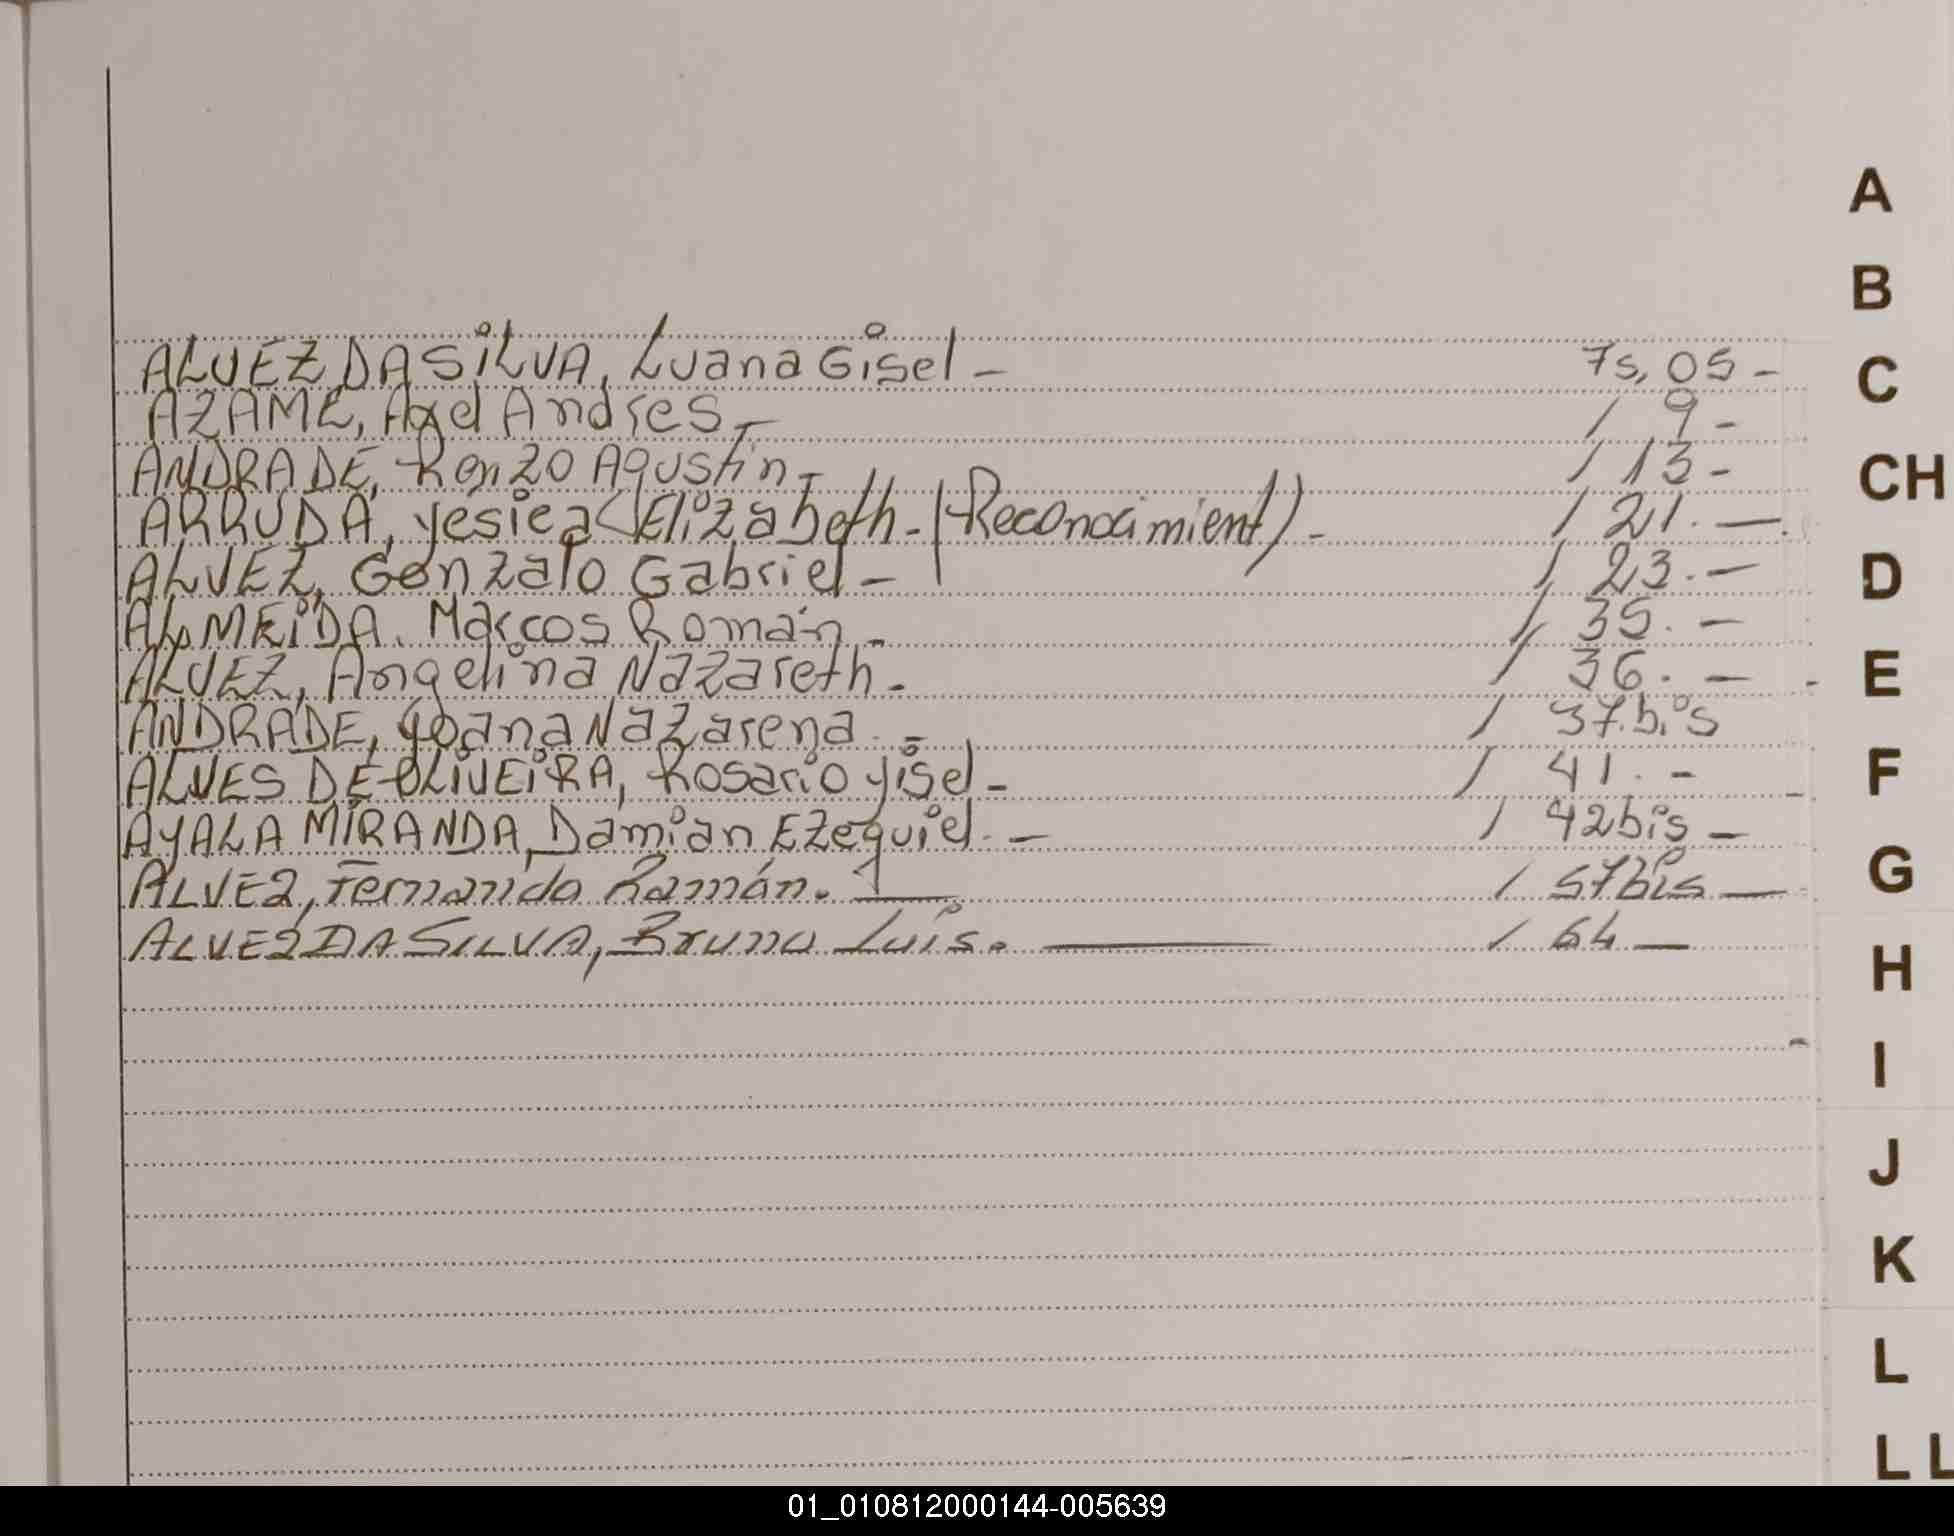 ALVEZ DA SILVA, Luana Gisel - 7s, 05 -
AZAME, Axel Andres - / 9 -
ANDRADE, Renzo Agustin - / 13 -
ARRUDA, yesica Elizabeth - (Reconocimient) - / 21. -
ALVEZ, Gonzalo Gabriel - / 23. -
ALMEIDA. Marcos Román - / 35. -
ALVEZ, Angelina Nazareth - / 36. -
ANDRADE, Yoana Nazarena - / 37.bis
ALVES DE OLIVEIRA, Rosario yisel - / 41. -
AYALA MIRANDA, Damian Ezequiel. - / 42bis -
ALVEZ, Fernando Ramón. - / 57bis -
ALVEZ DA SILVA, Bruno Luis. - / 64 -
A
B
C
CH
D
E
F
G
H
I
J
K
L
LL
01_010812000144-005639